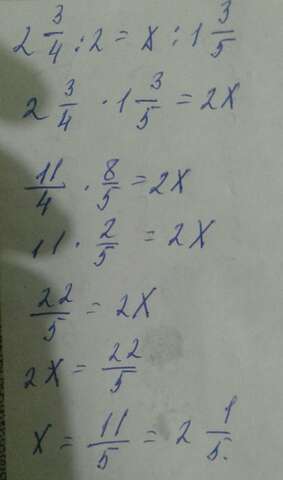 2 3/4 : 2 = x : 1 3/5
2 3/4 · 1 3/5 = 2x
11/4 · 8/5 = 2x
11 · 2/5 = 2x
22/5 = 2x
2x = 22/5
x = 11/5 = 2 1/5.